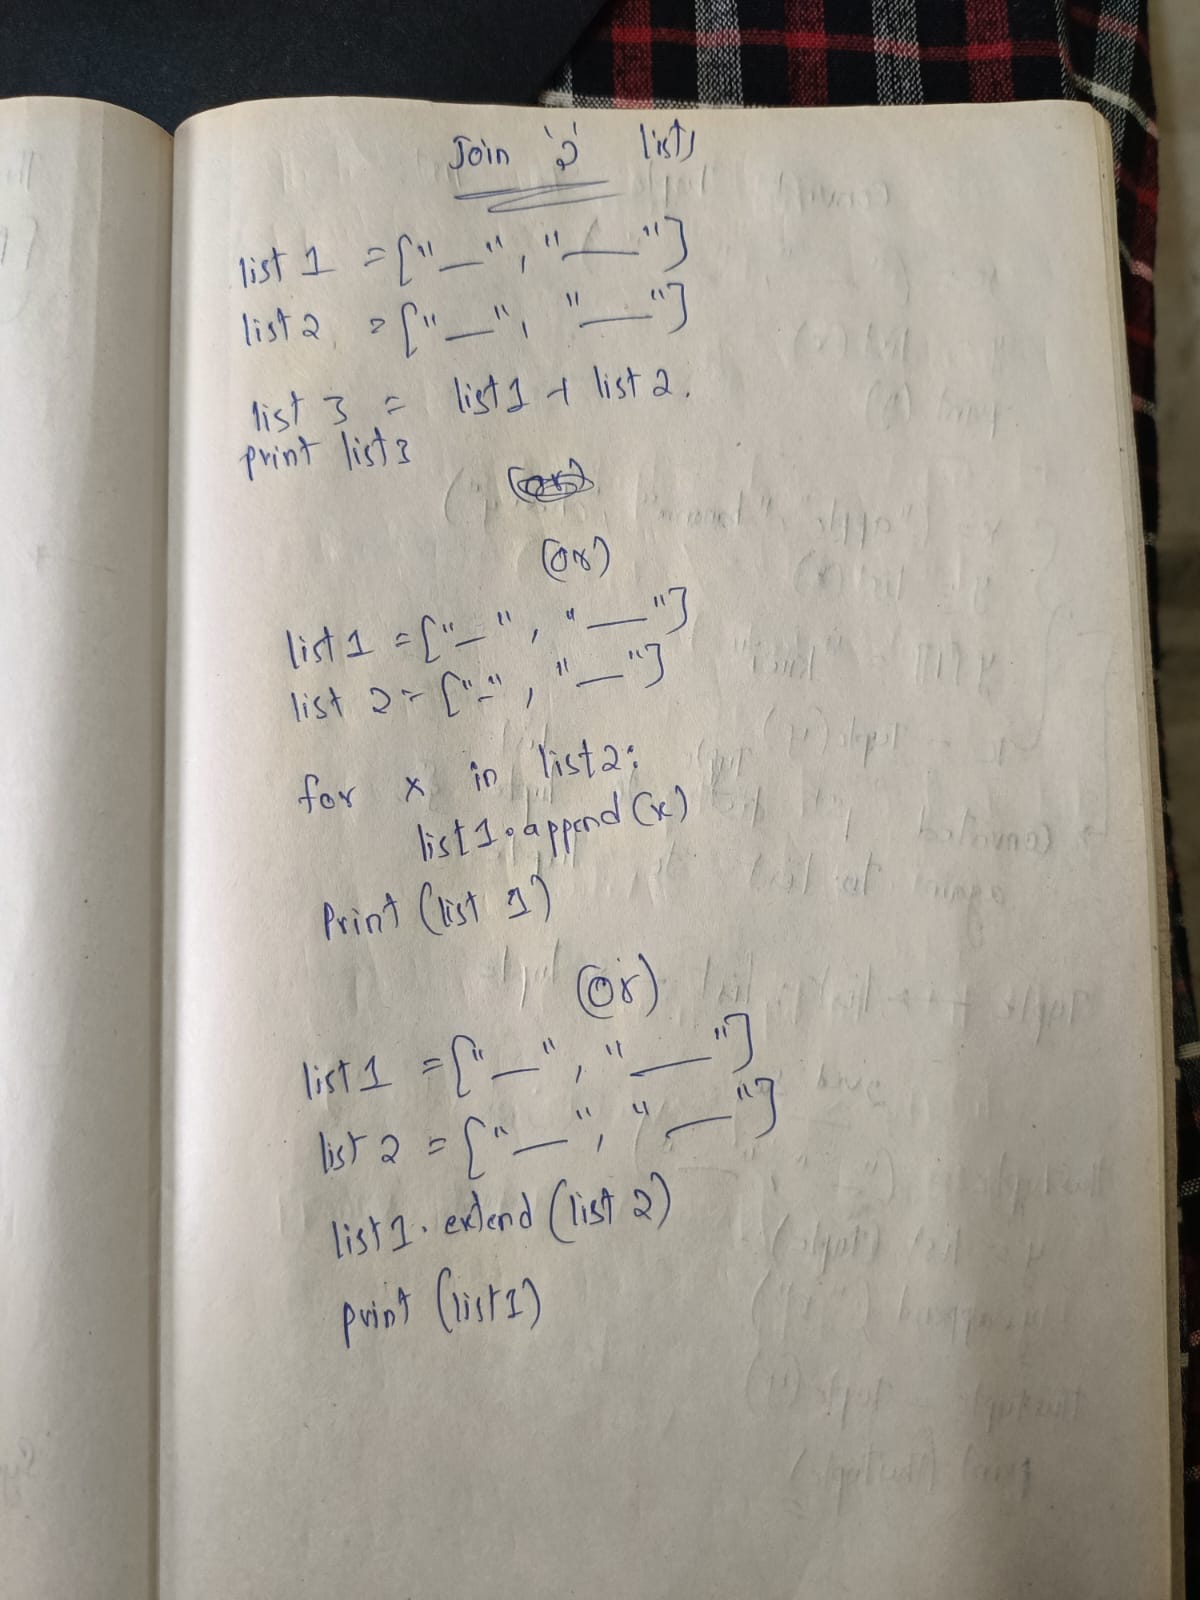 Join '2' lists
list 1 = ["__", "___"]
list 2 = ["__", "___"]
list 3 = list 1 + list 2.
print list 3
(or)
list 1 = ["_", "___"]
list 2 = ["-", "__"]
for x in list 2:
list 1.append(x)
Print (list 1)
(or)
list 1 = ["__", "___"]
list 2 = ["__", "___"]
list 1. extend (list 2)
print (list 1)